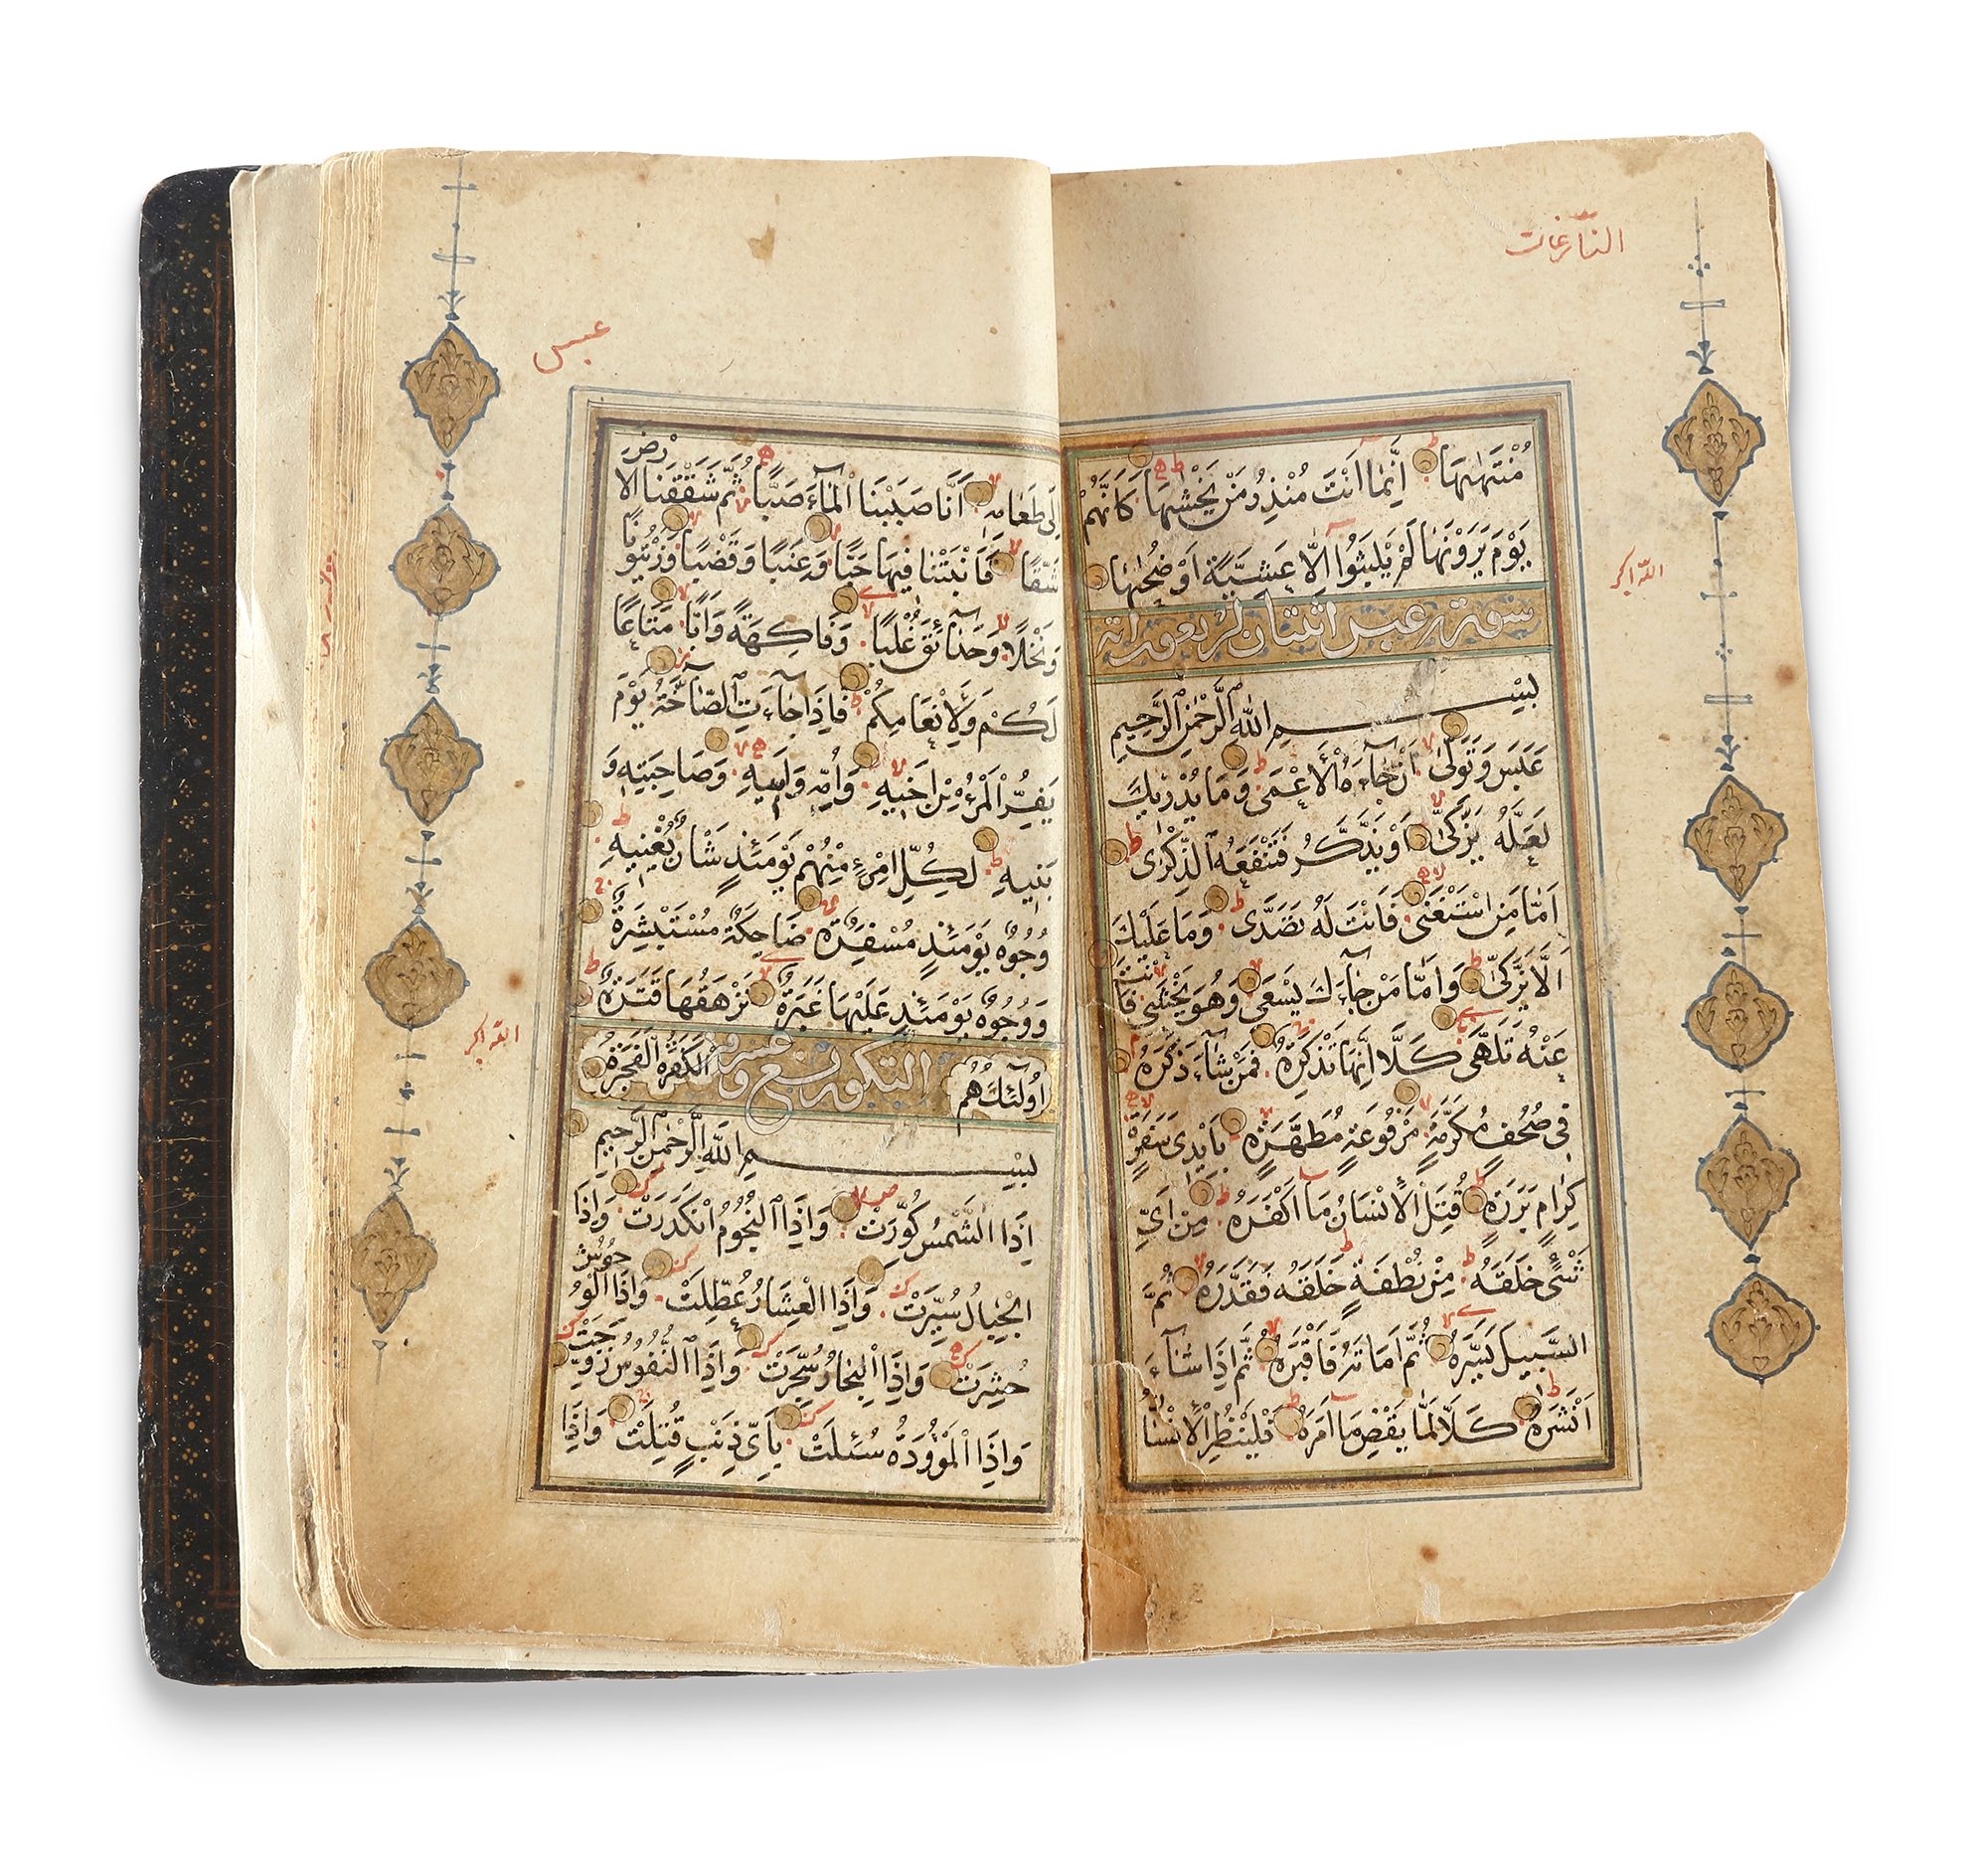 النازعات
مُنْتَهٰيهَا اِنَّمَا اَنْتَ مُنْذِرُ مَنْ يَخْشٰيهَا كَاَنَّهُمْ
يَوْمَ يَرَوْنَهَا لَمْ يَلْبَثُوا اِلَّا عَشِيَّةً اَوْ ضُحٰيهَا
الله اكبر
سورة عبس اثنتان اربعون اية
بِسْمِ اللّٰهِ الرَّحْمٰنِ الرَّحِيمِ
عَبَسَ وَتَوَلّٰى اَنْ جَاءَهُ الْاَعْمٰى وَمَا يُدْرِيكَ
لَعَلَّهُ يَزَّكّٰى اَوْ يَذَّكَّرُ فَتَنْفَعَهُ الذِّكْرٰى
اَمَّا مَنِ اسْتَغْنٰى فَاَنْتَ لَهُ تَصَدّٰى وَمَا عَلَيْكَ
اَلَّا يَزَّكّٰى وَاَمَّا مَنْ جَاءَكَ يَسْعٰى وَهُوَ يَخْشٰى فَاَنْتَ
عَنْهُ تَلَهّٰى كَلَّا اِنَّهَا تَذْكِرَةٌ فَمَنْ شَاءَ ذَكَرَهُ
فِي صُحُفٍ مُكَرَّمَةٍ مَرْفُوعَةٍ مُطَهَّرَةٍ بِاَيْدِي سَفَرَةٍ
كِرَامٍ بَرَرَةٍ قُتِلَ الْاِنْسَانُ مَا اَكْفَرَهُ مِنْ اَيِّ
شَيْءٍ خَلَقَهُ مِنْ نُطْفَةٍ خَلَقَهُ فَقَدَّرَهُ ثُمَّ
السَّبِيلَ يَسَّرَهُ ثُمَّ اَمَاتَهُ فَاَقْبَرَهُ ثُمَّ اِذَا شَاءَ
اَنْشَرَهُ كَلَّا لَمَّا يَقْضِ مَا اَمَرَهُ فَلْيَنْظُرِ الْاِنْسَانُ
عبس
اِلٰى طَعَامِهِ اَنَّا صَبَبْنَا الْمَاءَ صَبًّا ثُمَّ شَقَقْنَا الْاَرْضَ
شَقًّا فَاَنْبَتْنَا فِيهَا حَبًّا وَعِنَبًا وَقَضْبًا وَزَيْتُونًا
وَنَخْلًا وَحَدَائِقَ غُلْبًا وَفَاكِهَةً وَاَبًّا مَتَاعًا
لَكُمْ وَلِاَنْعَامِكُمْ فَاِذَا جَاءَتِ الصَّاخَّةُ يَوْمَ
يَفِرُّ الْمَرْءُ مِنْ اَخِيهِ وَاُمِّهِ وَاَبِيهِ وَصَاحِبَتِهِ وَ
بَنِيهِ لِكُلِّ امْرِئٍ مِنْهُمْ يَوْمَئِذٍ شَاْنٌ يُغْنِيهِ
وُجُوهٌ يَوْمَئِذٍ مُسْفِرَةٌ ضَاحِكَةٌ مُسْتَبْشِرَةٌ
وَوُجُوهٌ يَوْمَئِذٍ عَلَيْهَا غَبَرَةٌ تَرْهَقُهَا قَتَرَةٌ
الله اكبر
اُولٰئِكَ هُمُ الْكَفَرَةُ الْفَجَرَةُ
التكوير تسع وعشرون
بِسْمِ اللّٰهِ الرَّحْمٰنِ الرَّحِيمِ
اِذَا الشَّمْسُ كُوِّرَتْ وَاِذَا النُّجُومُ انْكَدَرَتْ وَاِذَا
الْجِبَالُ سُيِّرَتْ وَاِذَا الْعِشَارُ عُطِّلَتْ وَاِذَا الْوُحُوشُ
حُشِرَتْ وَاِذَا الْبِحَارُ سُجِّرَتْ وَاِذَا النُّفُوسُ زُوِّجَتْ
وَاِذَا الْمَوْؤُدَةُ سُئِلَتْ بِاَيِّ ذَنْبٍ قُتِلَتْ وَاِذَا